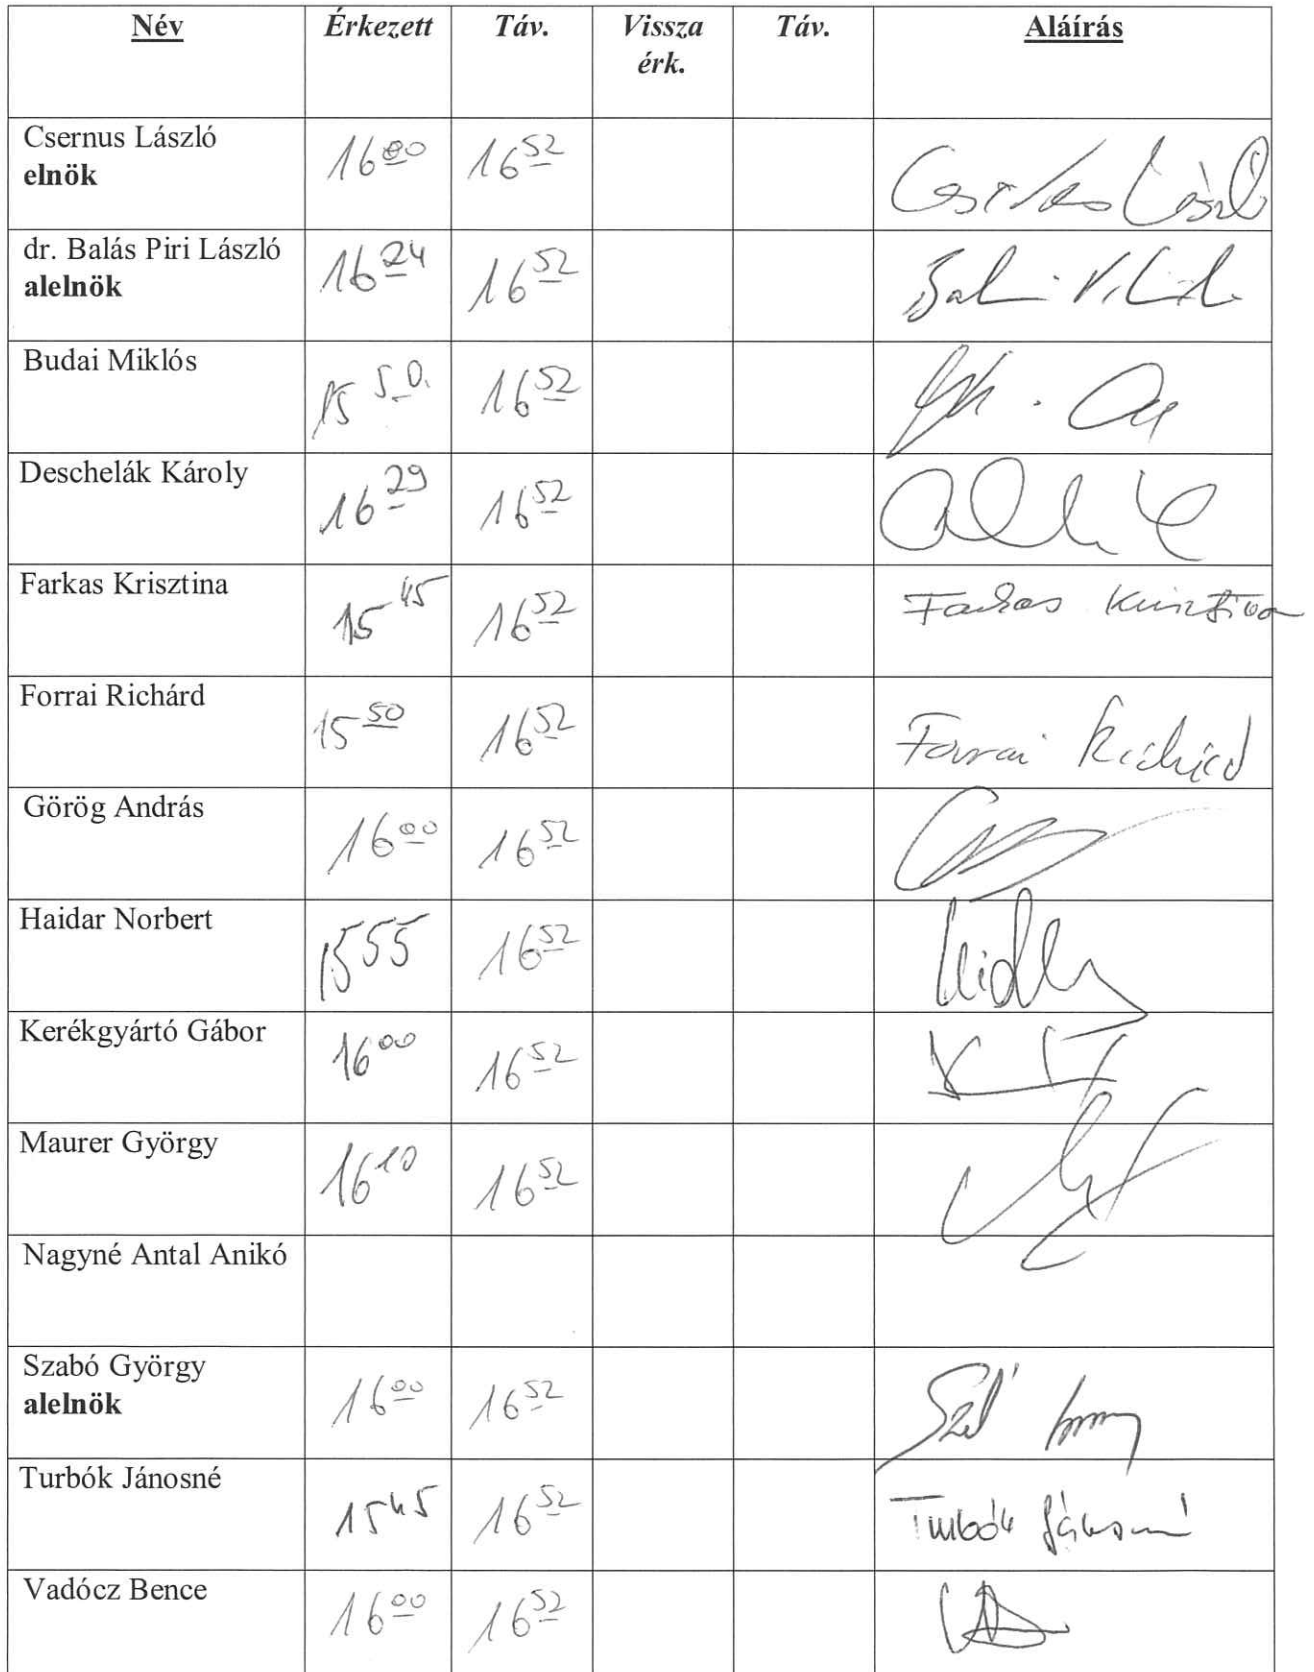 Név Érkezett Táv. Vissza érk. Táv. Aláírás
Csernus László 16 00 16 52 László
elnök
dr. Balás Piri László 16 24 16 52
alelnök
Budai Miklós 15 50. 16 52
Deschelák Károly 16 29 16 52
Farkas Krisztina 15 45 16 52 Farkas Krisztina
Forrai Richárd 15 50 16 52 Forrai Richárd
Görög András 16 00 16 52
Haidar Norbert 15 55 16 52
Kerékgyártó Gábor 16 00 16 52
Maurer György 16 10 16 52
Nagyné Antal Anikó
Szabó György 16 00 16 52
alelnök
Turbók Jánosné 15 45 16 52 Turbók Jánosné
Vadócz Bence 16 00 16 52